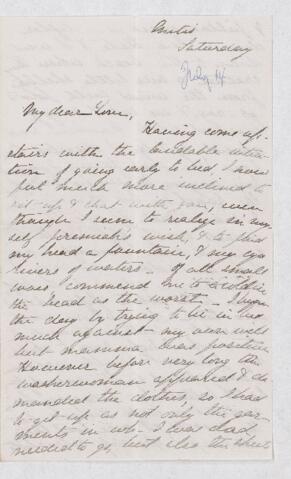 Saturday
July 14
My dear Love,
Having come up-
stairs with the laudable inten-
tion of going early to bed I now
feel much more inclined to
sit up & chat with you, even
though I seem to realize in my-
self Jeremiah's wish, & to find
my head a fountain, & my eyes
rivers of waters. Of all small
woes, commend me to a cold in
the head as the worst. I began
the day by trying to lie in bed
much against my own will
but mamma was positive
However before very long the
washerwoman appeared & de-
manded the clothes, so I had
to get up as not only the gar-
ments in wh. I was clad
needed to go, but also the sheets